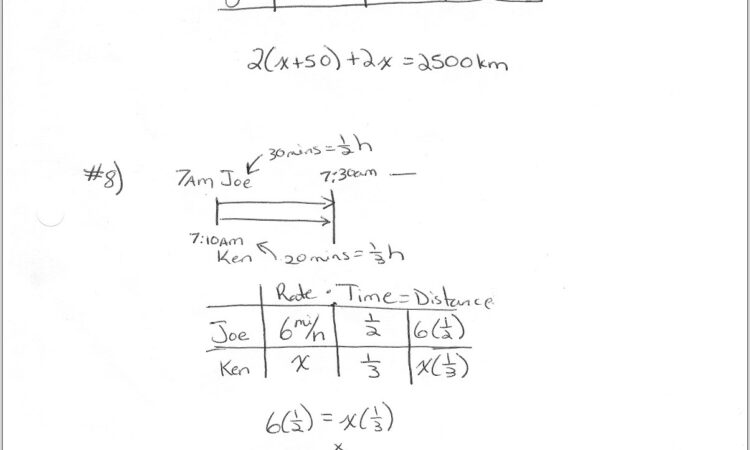 2(x+50)+2x=2500km
30mins=½h
#8) 7AM Joe 7:30am —
7:10AM
Ken 20mins=⅓h
Rate · Time = Distance
Joe 6 mi/h ½ 6(½)
Ken x ⅓ x(⅓)
6(½) = x(⅓)
x